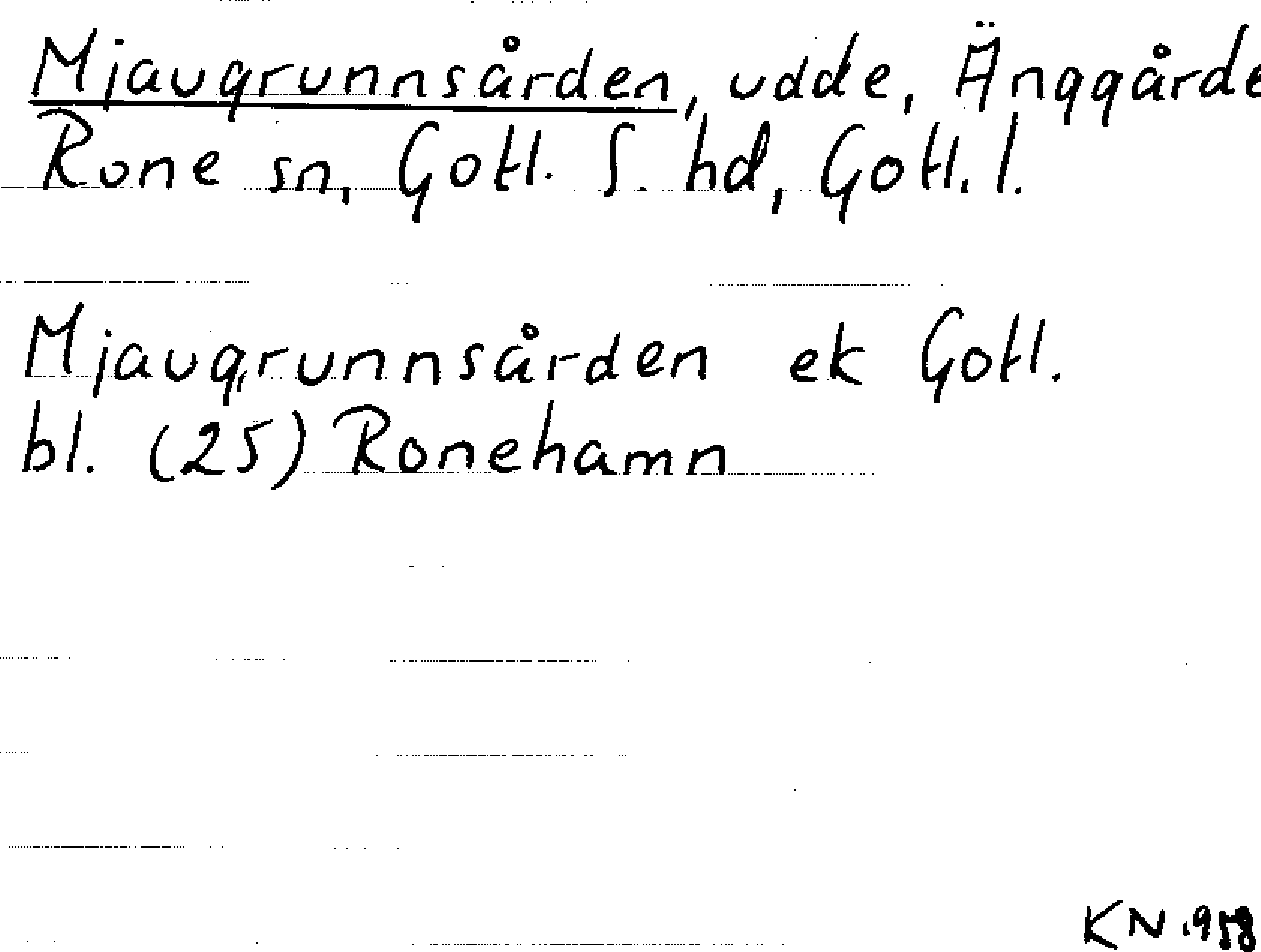 Mjaugrunnsården, udde, Änggårde
Rone sn, Gotl. S. hd, Gotl. l.
Mjaugrunnsården ek Gotl.
bl. (25) Ronehamn
KN.958